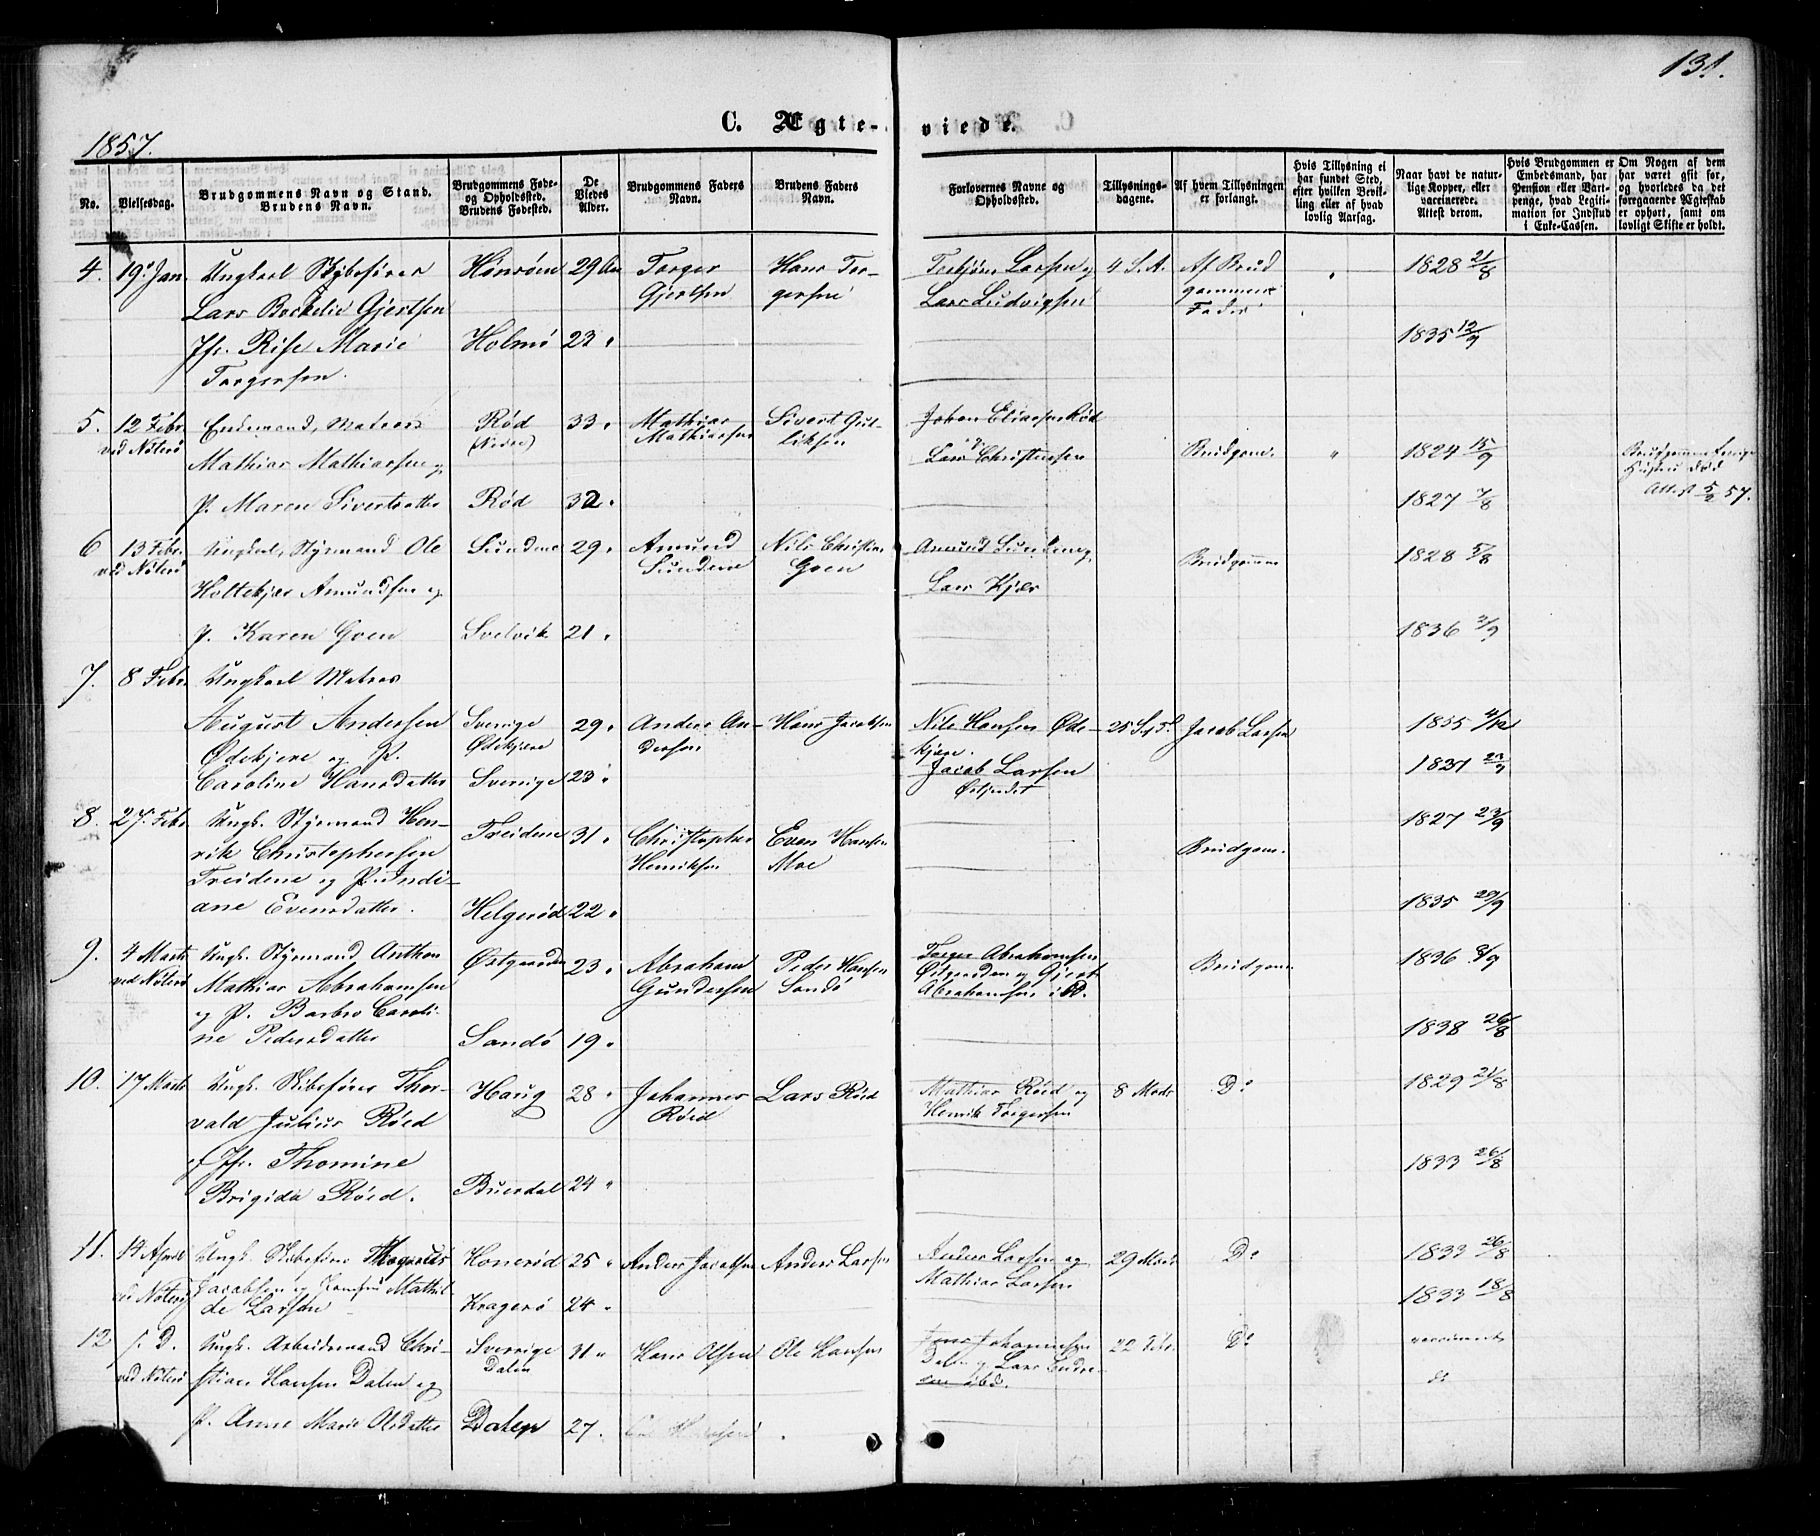 131.
C. Ægteviede.
1857.
No.
Vielsesdag.
Brudgommens Navn og Stand.
Brudens Navn.
Brudgommens Føde-
og Opholdssted.
Brudens Fødested.
De
Viedes
Alder.
Brudgommens Faders
Navn.
Brudens Faders
Navn.
Forlovernes Navne og
Opholdssted.
Tillysnings-
dagene.
Af hvem Tillysningen
er forlangt.
Hvis Tillysning ei
har fundet Sted,
efter hvilken Bevil-
ling eller af hvad
lovlig Aarsag.
Naar havt de natur-
lige Kopper, eller
vaccinerede.
Attest derom.
Hvis Brudgommen er
Embedsmand, har
Pension eller Vart-
penge, hvad Legiti-
mation for Indskud
i Enke-Cassen.
Om Nogen af dem
har været gift før,
og hvorledes da det
foregaaende Ægteskab
er ophørt, samt om
lovligt Skifte er holdt.
4. 19 Jan. Ungkarl Skibsfører
Lars Gjertsen
Jfr. Marie
Torgersen.
Holmø
29
23 "
Torger
Gjertsen
Hans Tor-
gersen
Torbjørn Larsen og
Lars Ludvigsen
4 S. A.
Af Brud
gommens
Fader
"
1828 21/8
1835 12/9
5. 12 Febr.
ved Nøterø
Enkemand, Matros
Mathias Mathiassen og
P. Maren Sivertsdatter
Rød
Rød
33 "
32 "
Mathias
Mathiassen
Sivert Gul-
liksen
Johan Eliassen Rød
Lars Christensen
Brudgom.
"
1824 15/9
1827 7/8
Hustru død
Att. 5/2 57.
6 13 Febr.
ved Nøterø
Ungkarl, Styrmand Ole
Holtekjær Amundsen og
P. Karen Goen
Sundene
Svelvik
29 "
21 "
Amund
Sundene
Nils Christian
Goen
Amund Sundene og
Lars Kjær
Brudgommen
1828 5/8
1836 3/9
7. 8 Febr. Ungkarl Matros
August Andersen
Ødekjere og P.
Caroline Hansdatter
Sverrige
Ødekjere
Sverrige
29 "
23 "
Anders An-
dersen
Hans Jacobsen
Nils Hansen Øde-
kjære.
Jacob Larsen
Jacob Larsen
1855 4/12
1837 23/9
8. 27. Febr. Ungk. Styrmand Hen-
rik Christophersen
Treidene og P. Indi-
ane Evensdatter.
Treidene
Helgerød
31 "
22 "
Christopher
Henriksen
Even Hansen
Moe
Brudgom.
1827 23/9
1835 29/9
9. 4 Marts
ved Nøterø
Ungk. Styrmand Anthon
Mathias Abrahamsen
og P. Barbro Caroli-
ne Pedersdatter
Østgaarden
Sandø
23 "
19 "
Abraham
Gundersen
Peder Hansen
Sandø
Torger Abrahamsen
Østgaarden og Gjert
Abrahamsen i D.
Brudgom
1836 8/9
1838 26/8
10. 17 Marts Ungk. Skibsfører Thor-
vald Julius Röed
og Jfr. Thomine
Brigida Röed.
Haug
Buerdal
28 "
24 "
Johannes
Röed
Lars Röed
Mathias Röed og
Henrik Torgersen
8 Marts
Do
1829 21/8
1833 26/8
11. 14 April
ved Nøterø
Ungk. Skibsfører
Jacobsen og Jomfru Mathil-
de Larsen
Honerød
Kragerø
25 "
24 "
Anders Jacobsen
Anders Larsen
Anders Larsen og
Mathias Larsen
29 Marts
Do
1833 26/8
1833 18/8
12 s. D.
ved Nøterø
Ungk. Arbeidsmand Chri-
stian Hansen Dalen og
P. Anne Marie Olsdatter
Sverrige
Dalen
Dalen
31 "
27.
Hans Olsen
Ole Hansen
Jens Johannesen
Dalen og Lars Endre-
sen ibd.
22 Febr.
Do
vaccineret
do